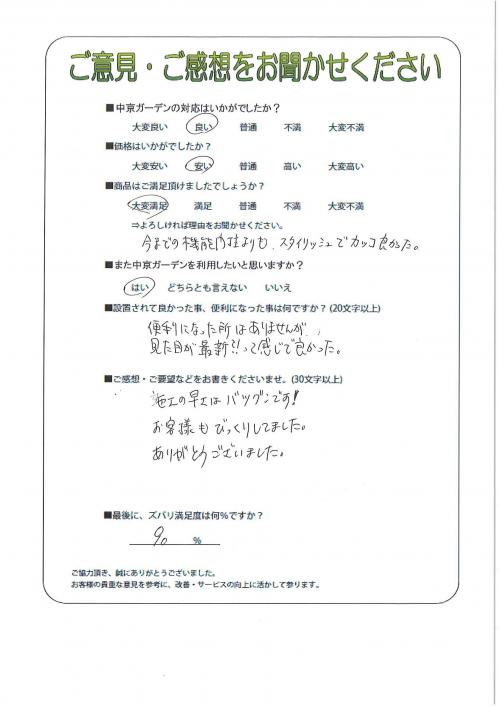 ご意見・ご感想をお聞かせください
■中京ガーデンの対応はいかがでしたか？
大変良い 良い 普通 不満 大変不満
■価格はいかがでしたか？
大変安い 安い 普通 高い 大変高い
■商品はご満足頂けましたでしょうか？
大変満足 満足 普通 不満 大変不満
⇒よろしければ理由をお聞かせください。
今までの機能門柱よりも、スタイリッシュでカッコ良かった。
■また中京ガーデンを利用したいと思いますか？
はい どちらとも言えない いいえ
■設置されて良かった事、便利になった事は何ですか？(20文字以上)
便利になった所はありませんが、
見た目が最新!!って感じで良かった。
■ご感想・ご要望などをお書きくださいませ。(30文字以上)
施工の早さはバツグンです!
お客様もびっくりしてました。
ありがとうございました。
■最後に、ズバリ満足度は何％ですか？
90 ％
ご協力頂き、誠にありがとうございました。
お客様の貴重な意見を参考に、改善・サービスの向上に活かして参ります。